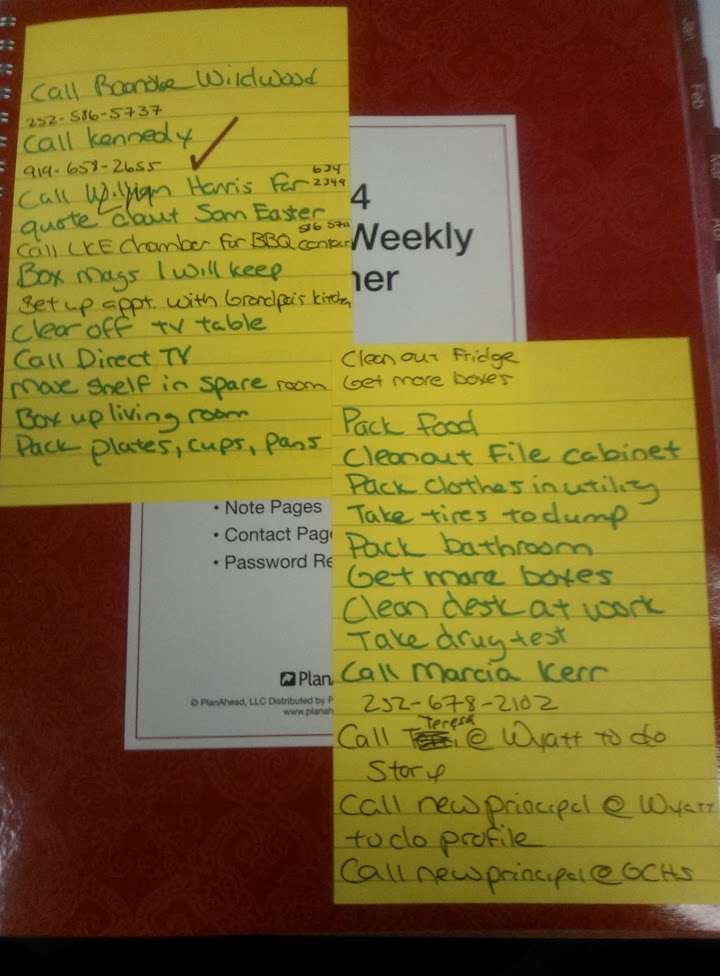 Call Roanoke Wildwood
252-586-5737
Call Kennedy
919-658-2655
Call William Harris For 634 2349
quote about Sam Easter
Call LKE Chamber for BBQ contact 586 5711
Box mags I will keep
Set up appt. with Grandpa's kitchen
Clear off TV table
Call Direct TV
Move shelf in spare room
Box up living room
Pack plates, cups, pans
Clean out Fridge
Get more boxes
Pack food
Clean out File cabinet
Pack clothes in utility
Take tires to dump
Pack bathroom
Get more boxes
Clean desk at work
Take drug test
Call Marcia Kerr
252-678-2102
Call Teresa @ Wyatt to do
Story
Call new principal @ Wyatt
to do profile
Call new principal @ GCHS
4
Weekly
ner
• Note Pages
• Contact Pag
• Password Re
Plan
© PlanAhead, LLC Distributed by P
www.planah
Jan
Feb
Mar